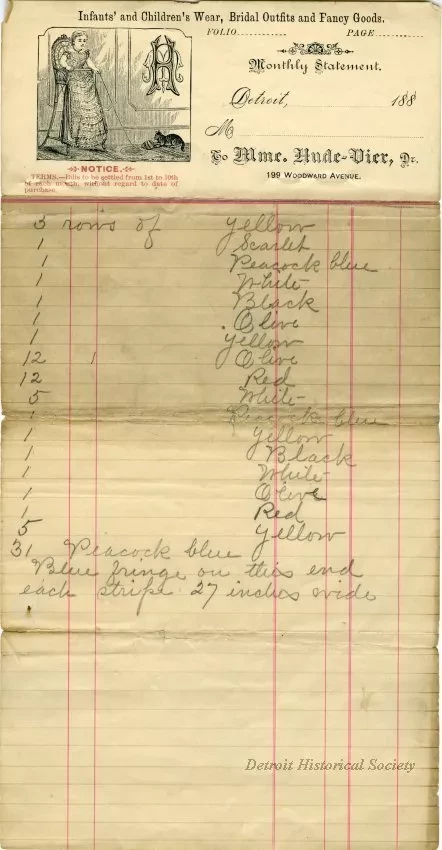 Infants' and Children's Wear, Bridal Outfits and Fancy Goods.
FOLIO............ PAGE............
Monthly Statement.
Detroit, 188
M
To Mme. Hude-Vier, Dr.
199 WOODWARD AVENUE.
NOTICE.
TERMS.—Bills to be settled from 1st to 10th
of each month, without regard to date of
purchase.
5 rows of yellow
1 Scarlet
1 Peacock blue
1 White
1 Black
1 Olive
1 Yellow
12 1 Olive
12 Red
5 White
1 Peacock blue
1 Yellow
1 Black
1 White
1 Olive
1 Red
5 Yellow
31 Peacock blue
Blue fringe on this end
each stripe 27 inches wide
Detroit Historical Society